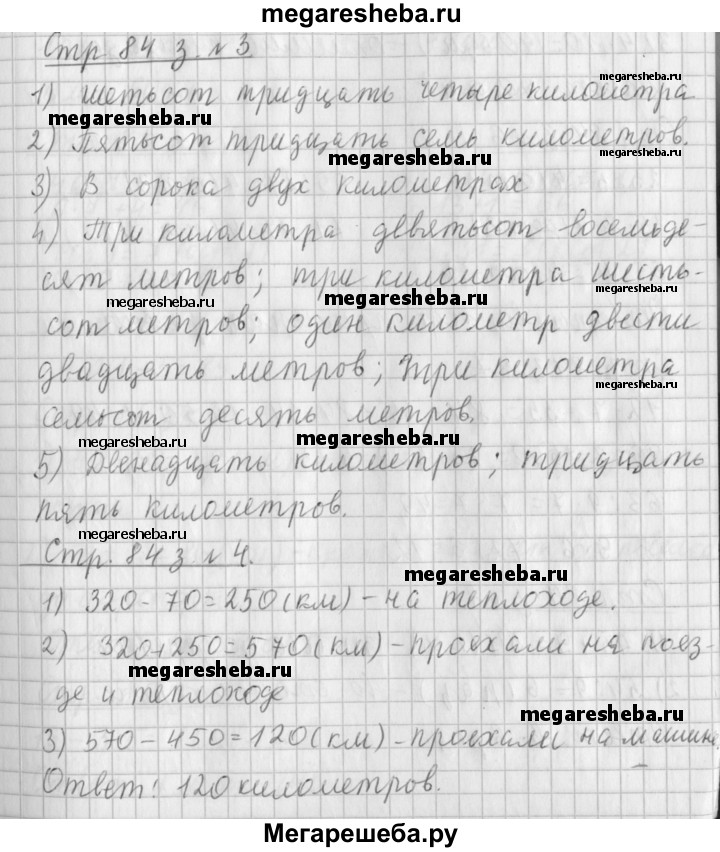 megaresheba.ru
Стр 84 з. № 3
megaresheba.ru
1) Шетьсот тридцать четыре километра
megaresheba.ru
2) Пятьсот тридцать семь километров.
megaresheba.ru
3) В сорока двух километрах
4) Три километра девятьсот восемьде-
сят метров; три километра шесть-
megaresheba.ru megaresheba.ru
сот метров; один километр двести
двадцать метров; три километра
megaresheba.ru
семьсот десять метров.
megaresheba.ru megaresheba.ru
5) Двенадцать километров; тридцать
пять километров.
megaresheba.ru
Стр. 84 з № 4.
megaresheba.ru
1) 320 - 70 = 250 (км) - на теплоходе.
2) 320+250=570 (км) - проехали на поез-
megaresheba.ru
де и теплоходе
megaresheba.ru
3) 570 - 450 = 120 (км) - проехали на машине.
Ответ: 120 километров.
Мегарешеба.ру